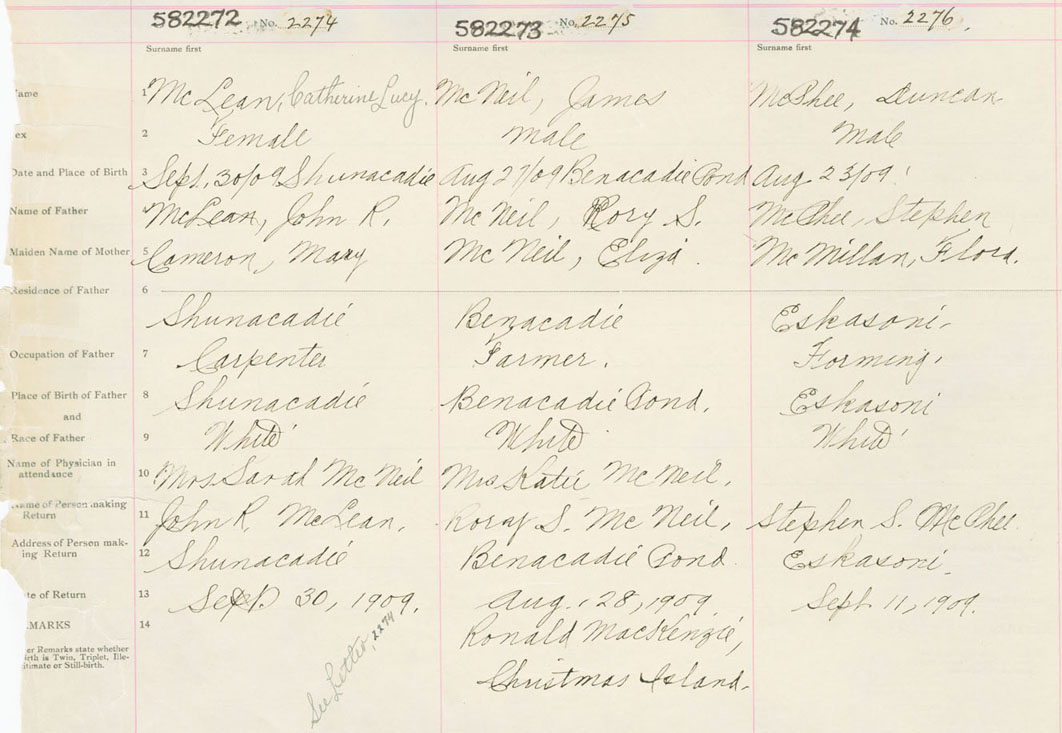 582272 No. 2274 582273 No. 2275 582274 No. 2276.
Surname first Surname first Surname first
ame 1 McLean, Catherine Lucy. McNeil, James McPhee, Duncan
ex 2 Female Male Male
Date and Place of Birth 3 Sept. 30/09 Shunacadie Aug 27/09 Benacadie Pond Aug 23/09.
Name of Father 4 McLean, John R. McNeil, Rory S. McPhee, Stephen
Maiden Name of Mother 5 Cameron, Mary McNeil, Eliza. McMillan, Flora.
Residence of Father 6
Shunacadie Benacadie Eskasoni.
Occupation of Father 7 Carpenter Farmer. Forming.
Place of Birth of Father 8 Shunacadie Benacadie Pond. Eskasoni
and
Race of Father 9 White White White
Name of Physician in
attendance 10 Mrs Sarah McNeil Mrs Katie McNeil.
Name of Person making
Return 11 John R. McLean. S. McNeil. Stephen S. McPhee
Address of Person mak-
ing Return 12 Shunacadie Benacadie Pond Eskasoni.
te of Return 13 Sept. 30, 1909. Aug. 28, 1909 Sept. 11, 1909.
EMARKS 14 See Letter, 2274 Ronald MacKenzie,
er Remarks state whether
irth is Twin, Triplet, Ille-
itimate or Still-birth.
Christmas Island.